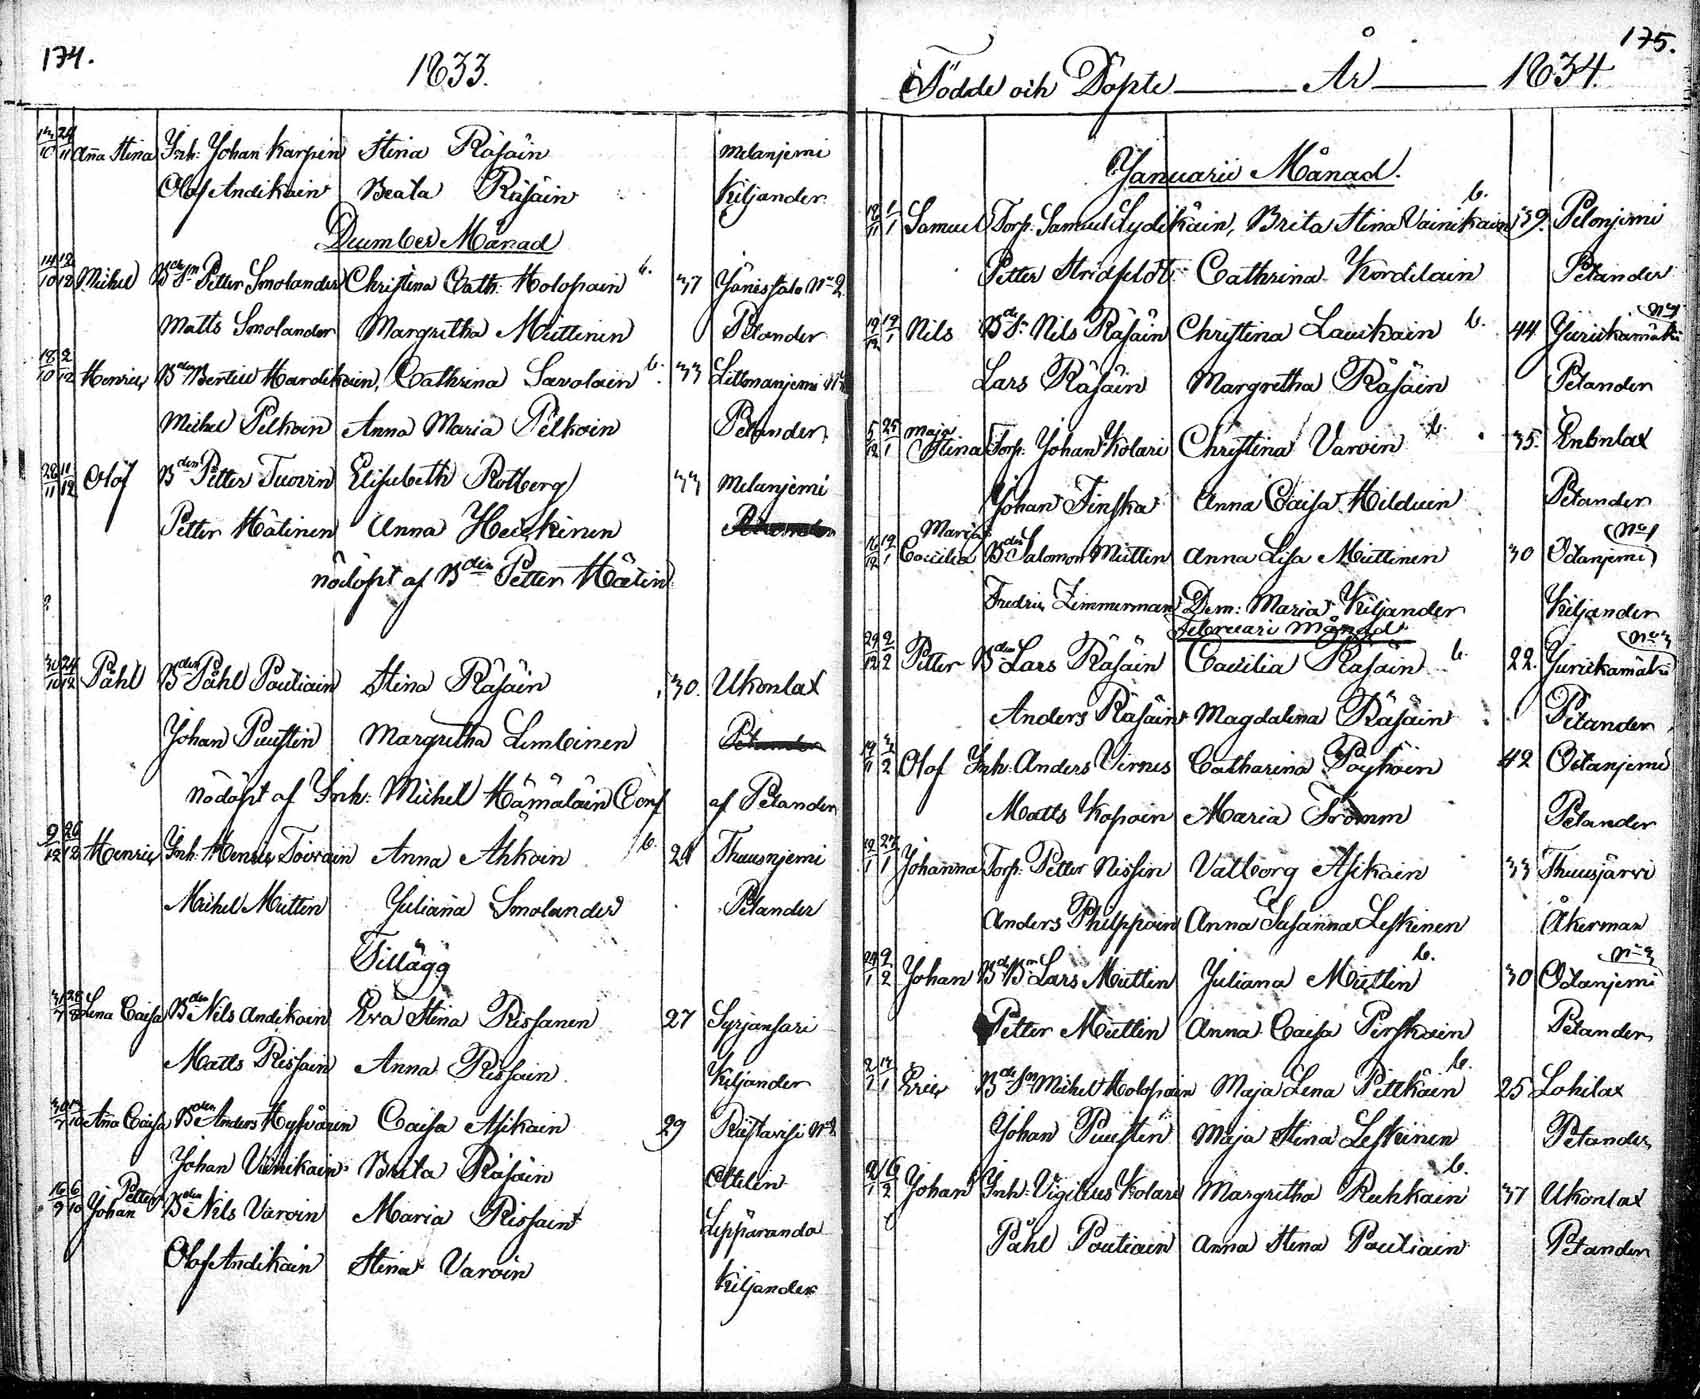 174.
1833.
13/10 24/11 Aña Stina Inh: Johan Karpin Stina Räsäin Melanjemi
Olof Andikain Beata Räsäin Kiljander
December Månad
14/10 12/12 Michel Petter Smolander Christina Cath: Holopain 37 Jänissalo No 2
Matts Smolander Margretha Miettinen Petander
18/10 2/12 Henric Bertill Hardikain, Cathrina Savolain 33
Michel Pelkoin Anna Maria Pelkoin Petander
28/11 11/12 Olof Bden Petter Tuovin Elisabeth Rotberg 33 Melanjemi
Petter Hätinen Anna Heickinen
nödöpt af Bden Petter Hätin
30/10 24/12 Påhl Bden Påhl Poutiain Stina Räsäin 30. Ukonlax
Johan Puustin Margretha Limbeinen
nödöpt af Inh: Michel Hämäläin Conf af Petander
9/12 26/12 Henric Inh: Henric Toivain Anna Ahkoin Thuusnjemi
Michel Miettin Juliaña Smolander Petander
Tillägg
Lena Caisa Bden Nils Andikain Eva Stina Rissanen 27 Syrjansari
Matts Rissain Anna Rissain Kiljander
Aña Caisa Bden Anders Hyfvärin Caisa Asikain 29 Riistavesi No 2
Johan Vänikain Brita Räsäin
16/9 6/10 Petter
Johan Bden Nils Varoin Maria Rissain Lepparanda
Olof Andikain Stina Varoin Kiljander
175.
Födde och Döpte År 1834.
Januarii Månad.
1/1 Samuel Torp. Samuel Lydikäin, Brita Stina Vainikain 39. Pelonjemi
Petter Stridsflöt Cathrina Kordelain Petander
Nils Nils Räsäin Christina Lauikain 44 Juriekamäki
Lars Räsäin Margretha Räsäin Petander
5/12 25/1 Maja
Stina Torp. Johan Kolari Christina Varoin 35. Enonlax
Johan Finska Anna Caisa Hilduin Petander
Maria No 1
16/12 Cæcilia Bden Salomon Miettin Anna Lisa Miettinen 30 Otanjemi
Fredric Zimmerman Dem: Maria Kiljander Kiljander
Februari Månad
29/12 2/2 Petter Bden Lars Räsäin Cæcilia Räsäin 22. Juriekamäki
Anders Räsäin Magdalina Räsäin Petander
Olof Inh. Anders Virnes Catharina Pöyhöin 42 Otanjemi
Matts Kopoin Maria Fromm Petander
Johanna Torp. Petter Nissin Valborg Asikain 33 Thuusjärvi
Anders Philppain Anna Susanna Leskinen Åkerman
Johan Lars Miettin Juliana Miettin 30 Otanjemi
Petter Miettin Anna Caisa Perskain Petander
Eric Michel Holopain Maja Lena Pitkäin 25 Lohilax
Johan Puustin Maja Stina Leskinen Petander
Johan Inh. Vigilius Kolari Margretha Ruhkain 37 Ukonlax
Påhl Poutiain Anna Stina Poutiain Petander